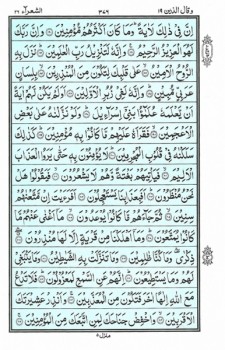 وقال الذین ۱۹ ۳۷۶ الشعرآء ۲۶
اِنَّ فِیْ ذٰلِكَ لَاٰیَةً ؕ وَمَا كَانَ اَكْثَرُهُمْ مُّؤْمِنِیْنَ ۝ وَاِنَّ رَبَّكَ
لَهُوَ الْعَزِیْزُ الرَّحِیْمُ ۝ وَاِنَّهٗ لَتَنْزِیْلُ رَبِّ الْعٰلَمِیْنَ ۝ نَزَلَ بِهِ
الرُّوْحُ الْاَمِیْنُ ۝ عَلٰی قَلْبِكَ لِتَكُوْنَ مِنَ الْمُنْذِرِیْنَ ۝ بِلِسَانٍ
عَرَبِیٍّ مُّبِیْنٍ ۝ وَاِنَّهٗ لَفِیْ زُبُرِ الْاَوَّلِیْنَ ۝ اَوَلَمْ یَكُنْ لَّهُمْ اٰیَةً
اَنْ یَّعْلَمَهٗ عُلَمٰٓؤُا بَنِیْٓ اِسْرَآءِیْلَ ۝ وَلَوْ نَزَّلْنٰهُ عَلٰی بَعْضِ
الْاَعْجَمِیْنَ ۝ فَقَرَاَهٗ عَلَیْهِمْ مَّا كَانُوْا بِهٖ مُؤْمِنِیْنَ ۝ كَذٰلِكَ
سَلَكْنٰهُ فِیْ قُلُوْبِ الْمُجْرِمِیْنَ ۝ لَا یُؤْمِنُوْنَ بِهٖ حَتّٰی یَرَوُا الْعَذَابَ
الْاَلِیْمَ ۝ فَیَاْتِیَهُمْ بَغْتَةً وَّهُمْ لَا یَشْعُرُوْنَ ۝ فَیَقُوْلُوْا هَلْ
نَحْنُ مُنْظَرُوْنَ ۝ اَفَبِعَذَابِنَا یَسْتَعْجِلُوْنَ ۝ اَفَرَءَیْتَ اِنْ مَّتَّعْنٰهُمْ
سِنِیْنَ ۝ ثُمَّ جَآءَهُمْ مَّا كَانُوْا یُوْعَدُوْنَ ۝ مَآ اَغْنٰی عَنْهُمْ مَّا
كَانُوْا یُمَتَّعُوْنَ ۝ وَمَآ اَهْلَكْنَا مِنْ قَرْیَةٍ اِلَّا لَهَا مُنْذِرُوْنَ ۝
ذِكْرٰی وَمَا كُنَّا ظٰلِمِیْنَ ۝ وَمَا تَنَزَّلَتْ بِهِ الشَّیٰطِیْنُ ۝ وَمَا یَنْۢبَغِیْ
لَهُمْ وَمَا یَسْتَطِیْعُوْنَ ۝ اِنَّهُمْ عَنِ السَّمْعِ لَمَعْزُوْلُوْنَ ۝ فَلَا تَدْعُ
مَعَ اللّٰهِ اِلٰهًا اٰخَرَ فَتَكُوْنَ مِنَ الْمُعَذَّبِیْنَ ۝ وَاَنْذِرْ عَشِیْرَتَكَ
الْاَقْرَبِیْنَ ۝ وَاخْفِضْ جَنَاحَكَ لِمَنِ اتَّبَعَكَ مِنَ الْمُؤْمِنِیْنَ ۝
منزل ۵